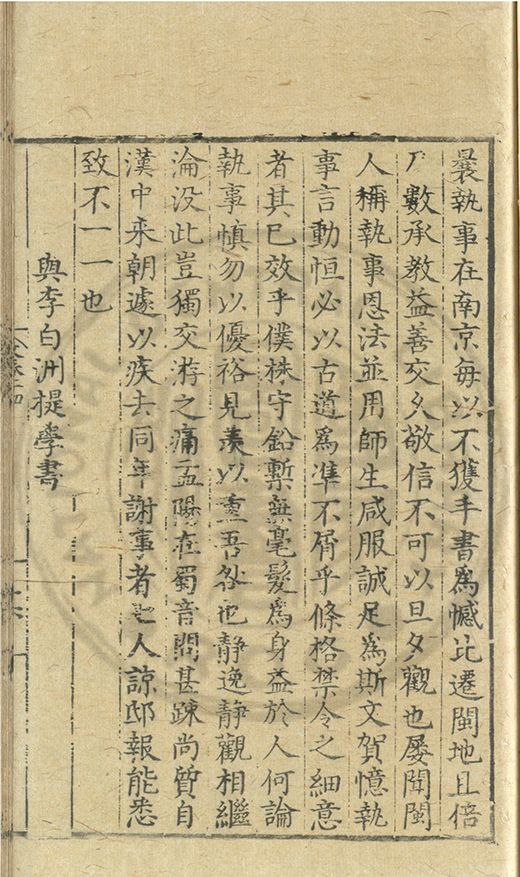 曩執事在南京每以不獲手書爲憾比遷閩地且倍
數承教益善交久敬信不可以旦夕觀也屡聞閩
人稱執事恩法並用師生咸服誠足爲斯文賀憶執
事言動恒必以古道爲準不屑乎條格禁令之細意
者其已效乎僕株守鉛槧無毫髮爲身益於人何論
執事慎勿以優裕見羨以重吾咎也静逸静觀相繼
淪没此豈獨交游之痛孟陽在蜀音問甚踈尚質自
漢中来朝遽以疾去同年謝事者七人諒邸報能悉
致不一一也
與李白洲提學書